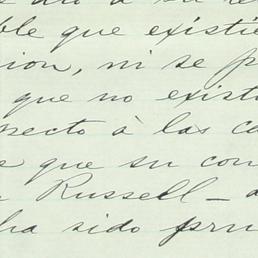 ble que existie
ion, ni se p
que no exist
pecto à las c
e que su con
Russell – a
ha sido pru